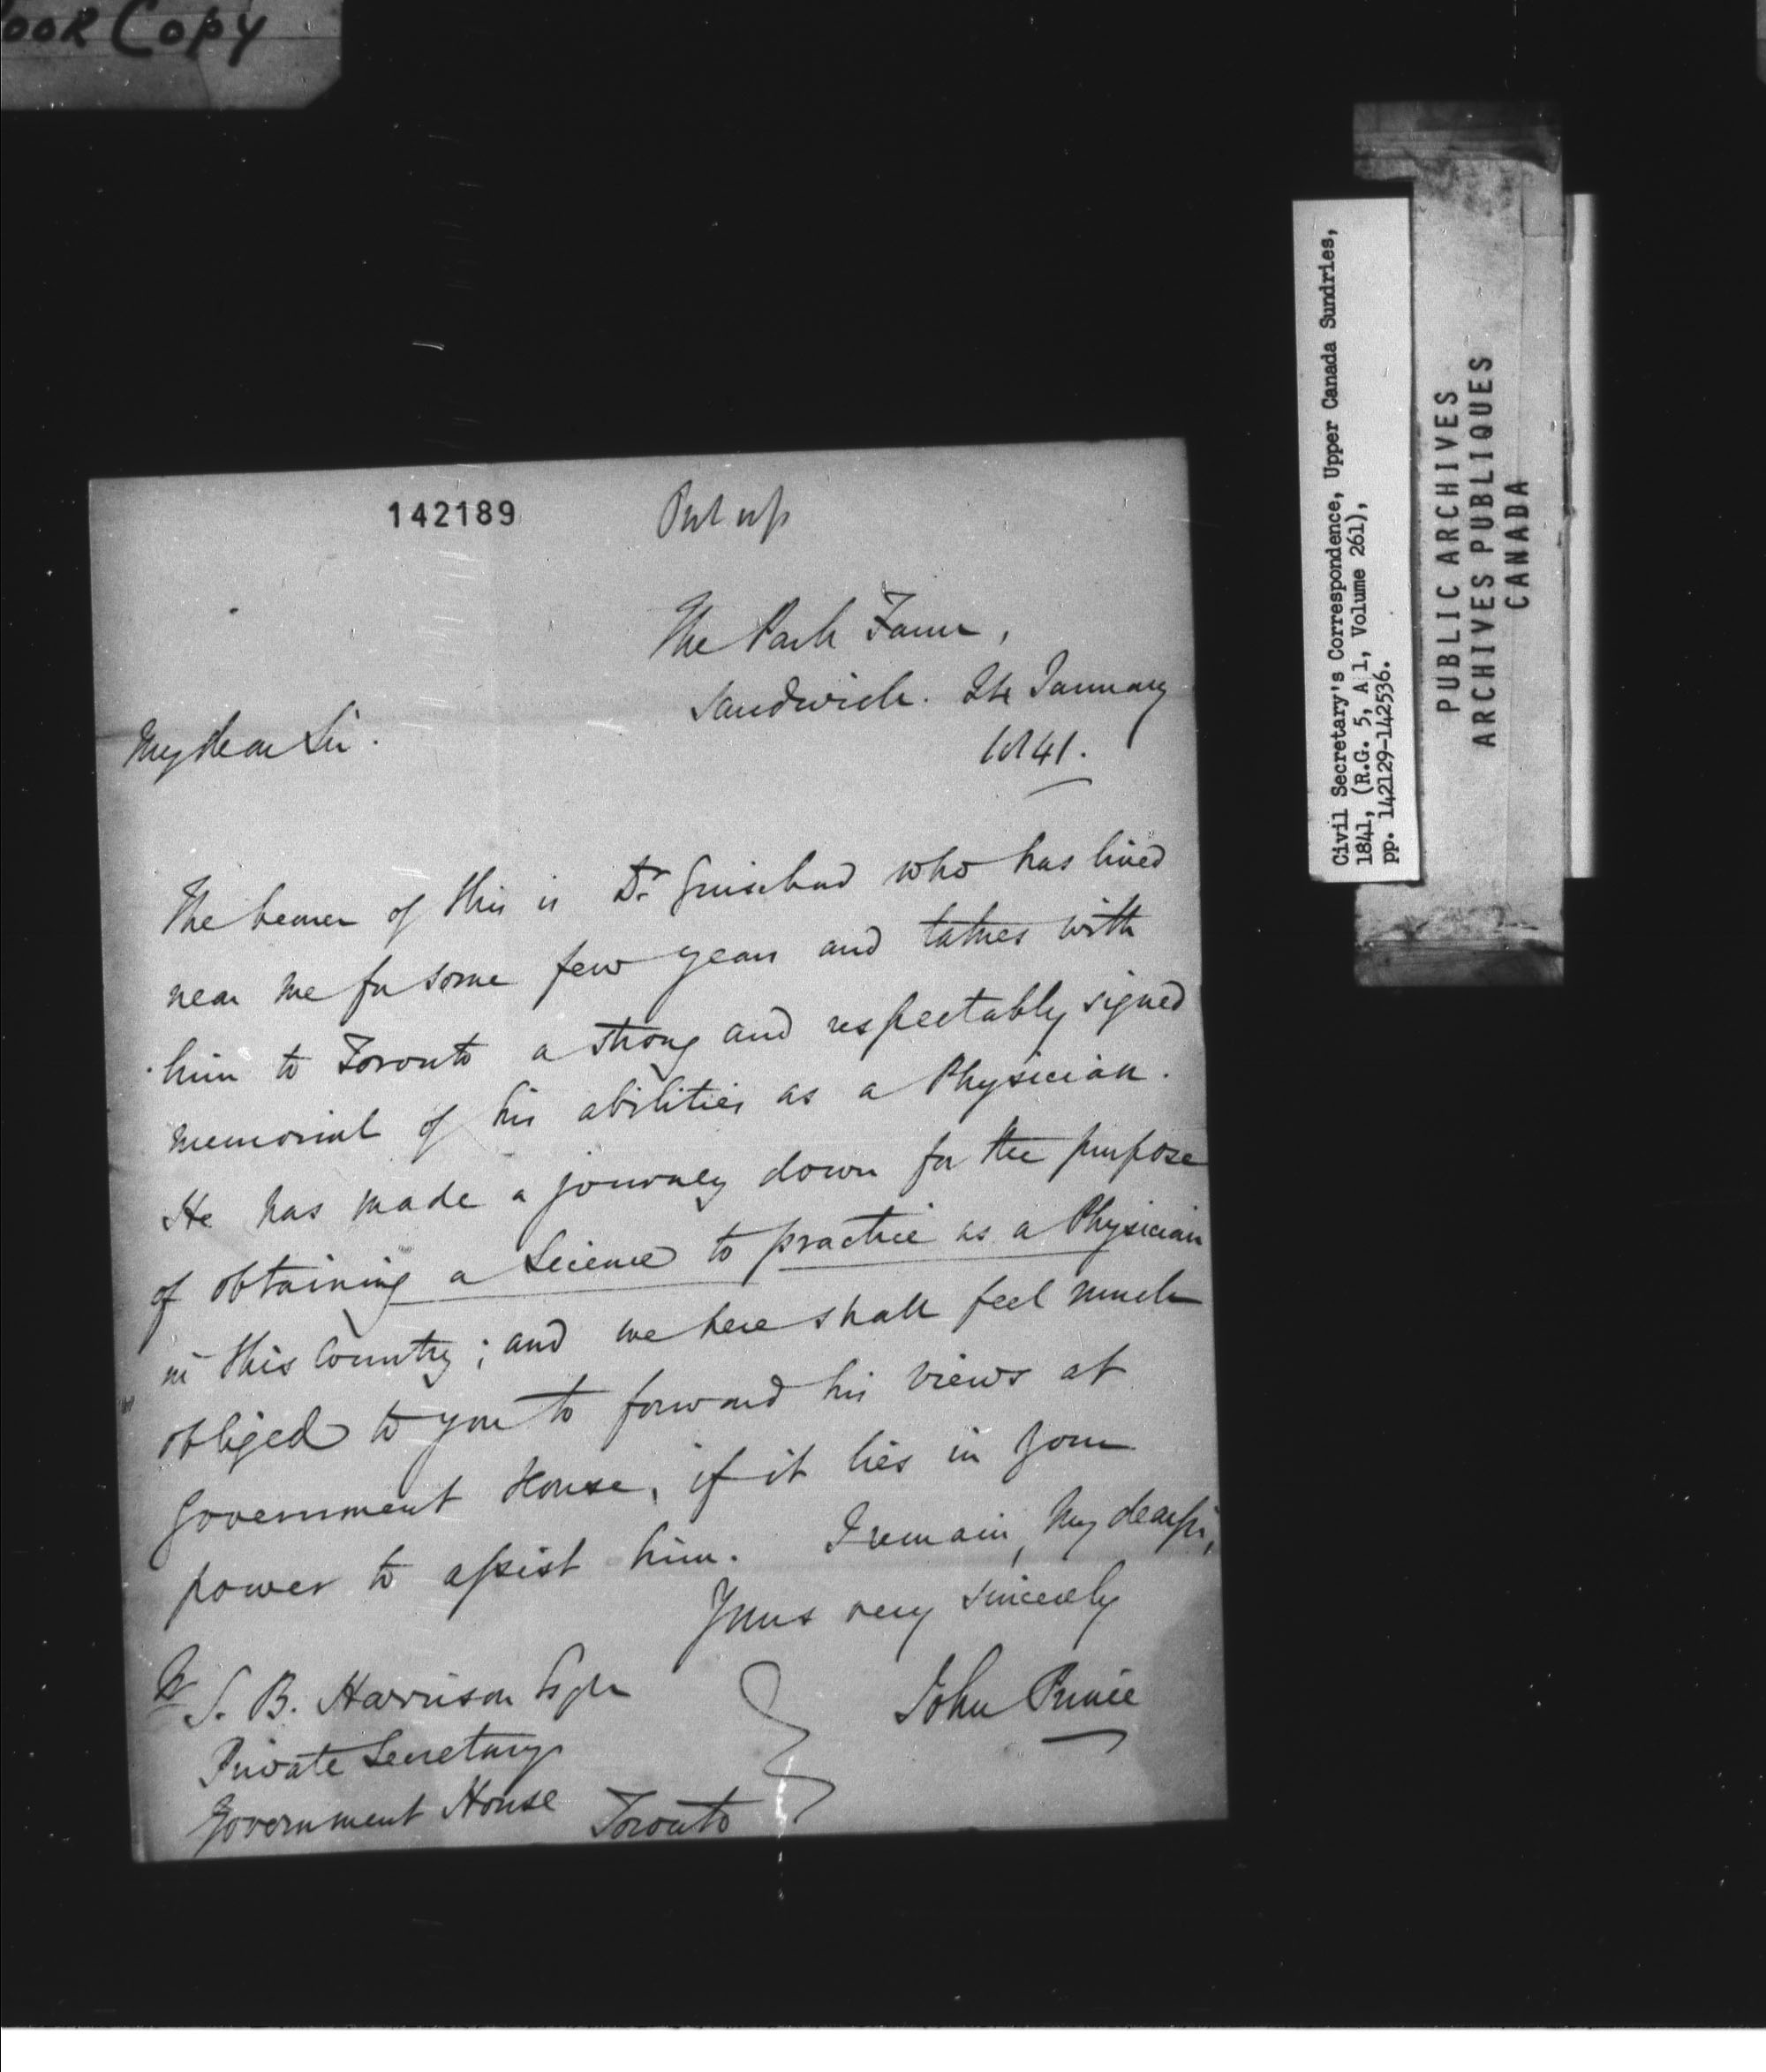 oor Copy
142189
Put up
The Park Farm,
Sandwich. 24 January
1841.
My dear Sir.
The bearer of this is Dr who has lived
near me for some few years and takes with
him to Toronto a strong and respectably signed
memorial of his abilities as a Physician.
He has made a journey down for the purpose
of obtaining a Licence to practice as a Physician
in this Country; and we here shall feel much
obliged to you to forward his views at
Government House, if it lies in your
power to assist him. I remain, My dear Sir,
Yours very sincerely
John Prince
S. B. Harrison Esqre
Private Secretary
Government House Toronto
Civil Secretary's Correspondence, Upper Canada Sundries,
1841, (R.G. 5, A 1, Volume 261),
pp. 142129-142536.
PUBLIC ARCHIVES
ARCHIVES PUBLIQUES
CANADA